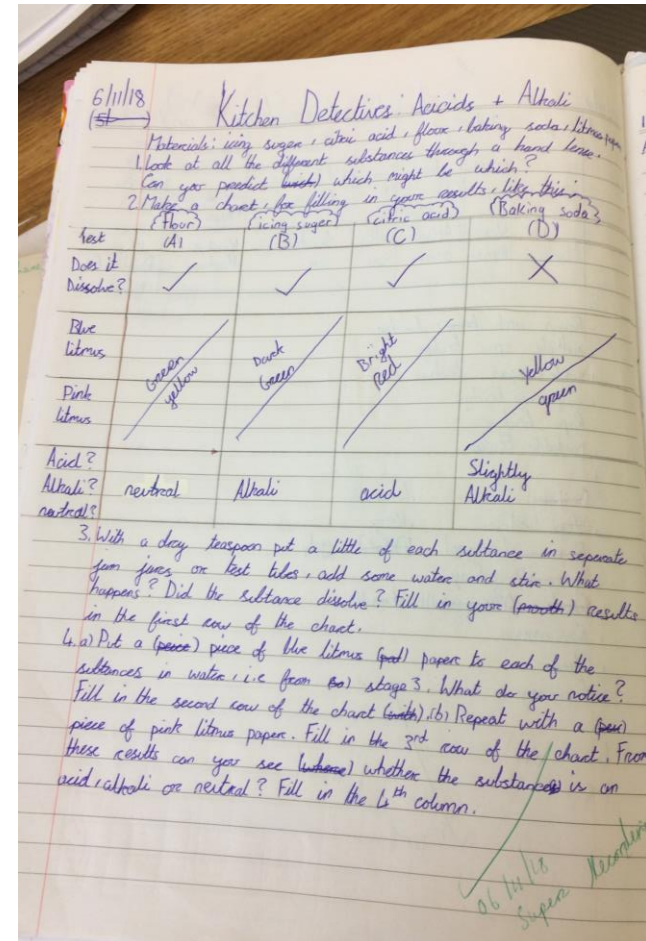 6/11/18
Kitchen Detectives: Acicids + Alkali
Materials: icing suger, citric acid, floor, baking soda, litmus paper
1. Look at all the different substances through a hand lense.
Can you predict which might be which?
2. Make a chart, for filling in your results, like this:
(flour) (icing suger) (citric acid) (Baking soda)
Test (A) (B) (C) (D)
Does it Dissolve? ✓ ✓ ✓ X
Blue litmus
Green yellow Dark Green Bright Red Yellow green
Pink litmus
Acid? Alkali? neutral? neutral Alkali acid Slightly Alkali
3. With a dry teaspoon put a little of each subtance in seperate
jam jars or test tubes, add some water and stir. What
happens? Did the subtance dissolve? Fill in your results
in the first row of the chart.
4. a) Put a (peice) piece of blue litmus papers to each of the
subtances in water, i.e from stage 3. What do you notice?
Fill in the second row of the chart (with). (b) Repeat with a
piece of pink litmus paper. Fill in the 3rd row of the chart. From
these results can you see whether the substance is an
acid, alkali or neutral? Fill in the 4th column.
06/11/18
Super Recording